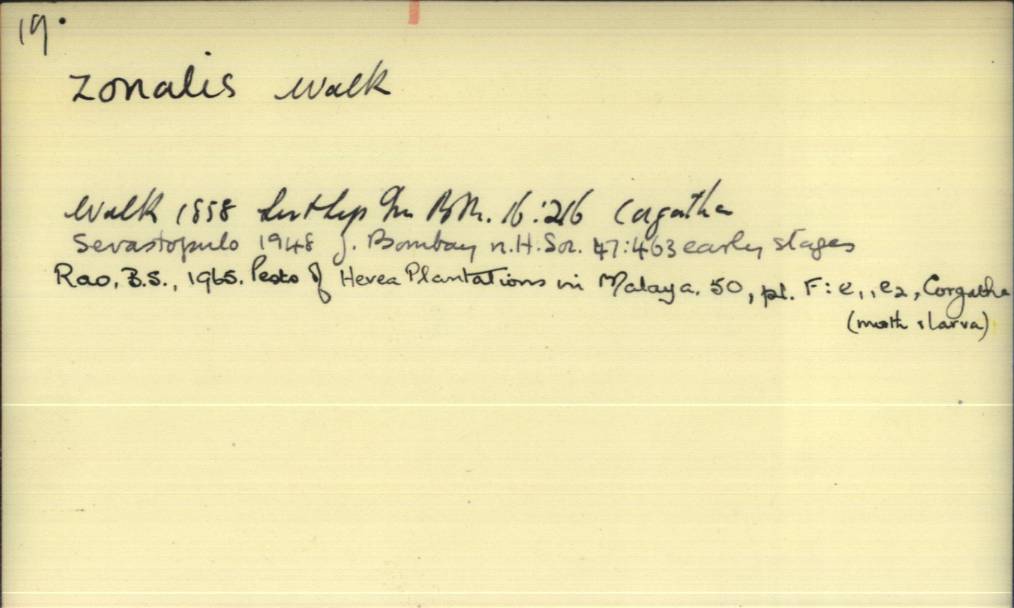 19.
zonalis Walk
Walk 1858 List Lep Ins B.M. 16:216 Corgatha
Sevastopulo 1948 J. Bombay n.H.Soc. 47:463 early stages
Rao, B.S., 1965. Pests of Hevea Plantations in Malaya. 50, pl. F: e1, e2, Corgatha
(moth & larva)